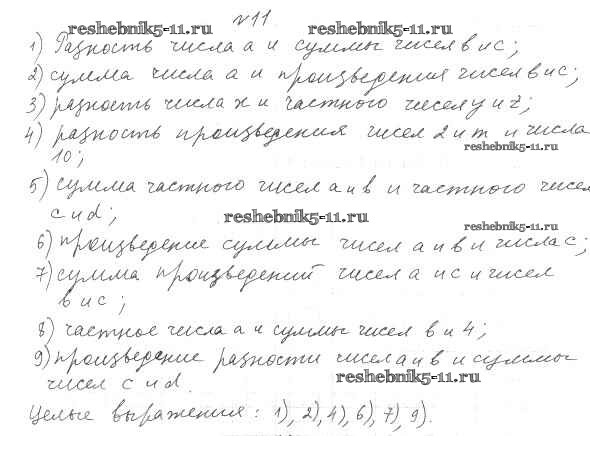 №11.
reshebnik5-11.ru reshebnik5-11.ru
1) Разность числа a и суммы чисел b и c;
2) сумма числа a и произведения чисел b и c;
3) разность числа x и частного чисел y и z;
4) разность произведения чисел 2 и m и числа
10;
reshebnik5-11.ru
5) сумма частного чисел a и b и частного чисел
c и d;
reshebnik5-11.ru
reshebnik5-11.ru
6) произведение суммы чисел a и b и числа c;
7) сумма произведений чисел a и c и чисел
b и c;
8) частное числа a и суммы чисел b и 4;
9) произведение разности чисел a и b и суммы
чисел c и d.
reshebnik5-11.ru
Целые выражения: 1), 2), 4), 6), 7), 9).